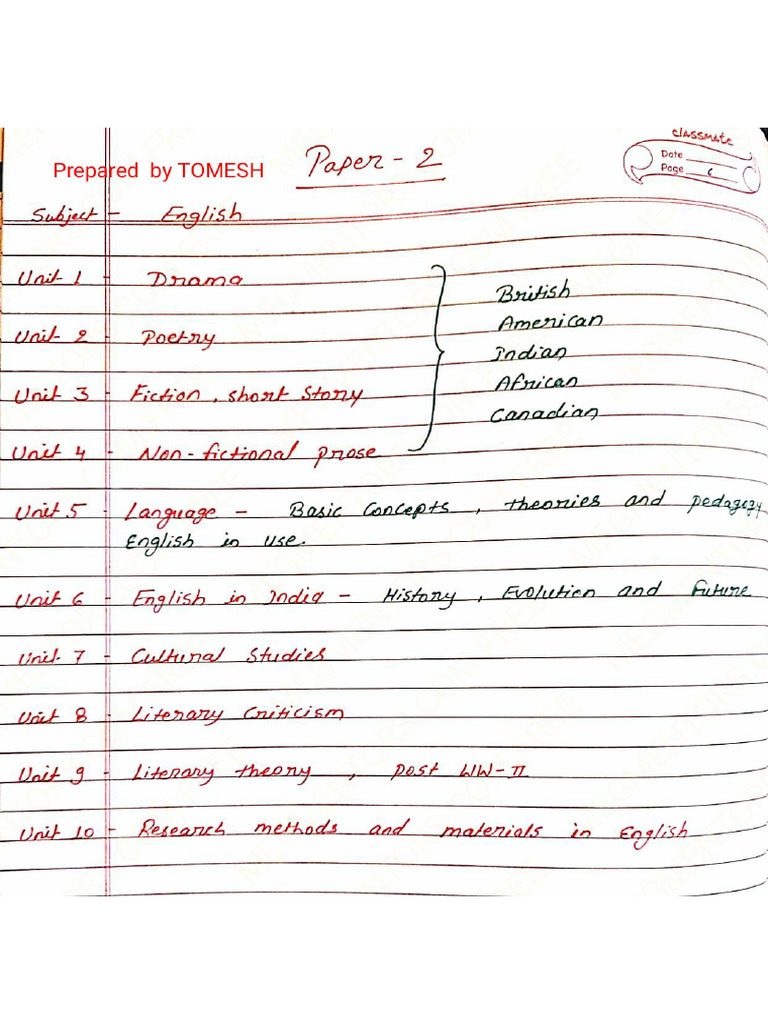 classmate
Date
Page 6
Prepared by TOMESH
Paper - 2
Subject - English
Unit 1 - Drama
Unit 2 - Poetry
Unit 3 - Fiction, short Story
Unit 4 - Non-fictional prose
British
American
Indian
African
Canadian
Unit 5 - Language - Basic Concepts, theories and pedagogy
English in use.
Unit 6 - English in India - History, Evolution and Future
Unit 7 - Cultural Studies
Unit 8 - Literary Criticism
Unit 9 - Literary theory, post WW-II
Unit 10 - Research methods and materials in English